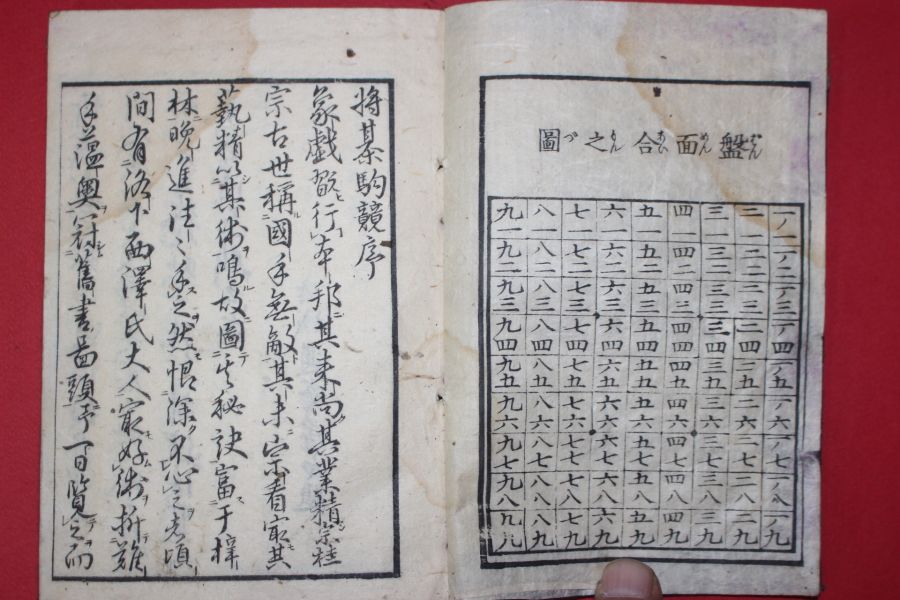 盤面合之圖
一一 一二 一三 一四 一五 一六 一七 一八 一九
二一 二二 二三 二四 二五 二六 二七 二八 二九
三一 三二 三三 三四 三五 三六 三七 三八 三九
四一 四二 四三 四四 四五 四六 四七 四八 四九
五一 五二 五三 五四 五五 五六 五七 五八 五九
六一 六二 六三 六四 六五 六六 六七 六八 六九
七一 七二 七三 七四 七五 七六 七七 七八 七九
八一 八二 八三 八四 八五 八六 八七 八八 八九
九一 九二 九三 九四 九五 九六 九七 九八 九九
將棊駒競序
象戲翫行本邦其来尚其業精宗桂
宗古世稱國手無敵其末宗看最其
藝精以其術鳴故圖式秘訣富于梓
林晩進法之然恨深不心之者頃
間有洛下西澤氏大人最好術折難
薀奥冠舊書頭予一日覧之而